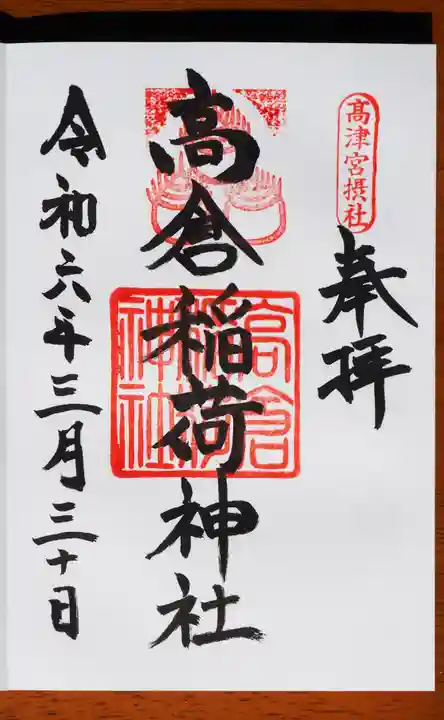 髙津宮摂社
奉拝
高倉稲荷神社
高倉稲荷神社
令和六年三月三十日